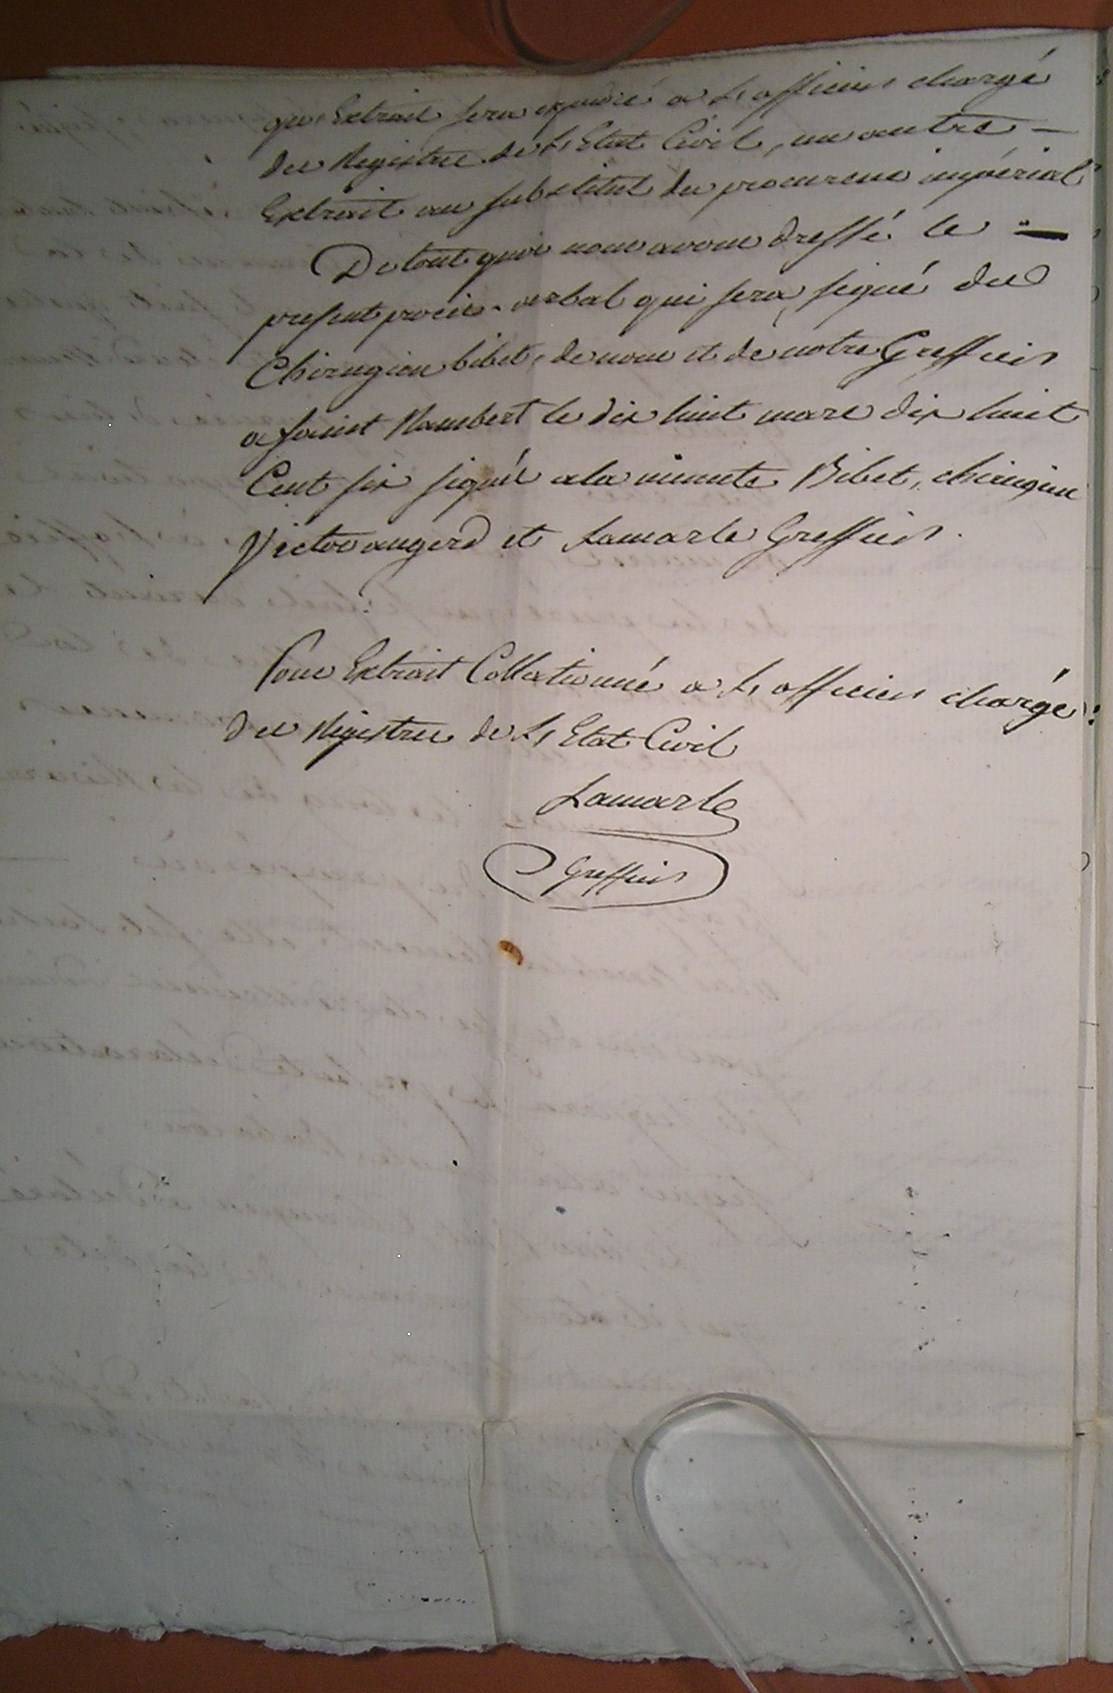 qu'Extrait sera expedié a L'officier chargé
des Registre de L'Etat Civil, un autre —
Extrait au substitut du procureur impérial
De tout quoi nous avons dressé le —
present procès-verbal qui sera signé du
Chirugien bibet, de nous et de notre Greffier
a saint Rambert le dix huit mars dix huit
Cent six signé a la minute Bibet, chirugien
Victor augerd et Lamarle Greffier.
Pour Extrait Collationné a L'officier chargé
des Registre de L'Etat Civil
Lamarle
Greffier